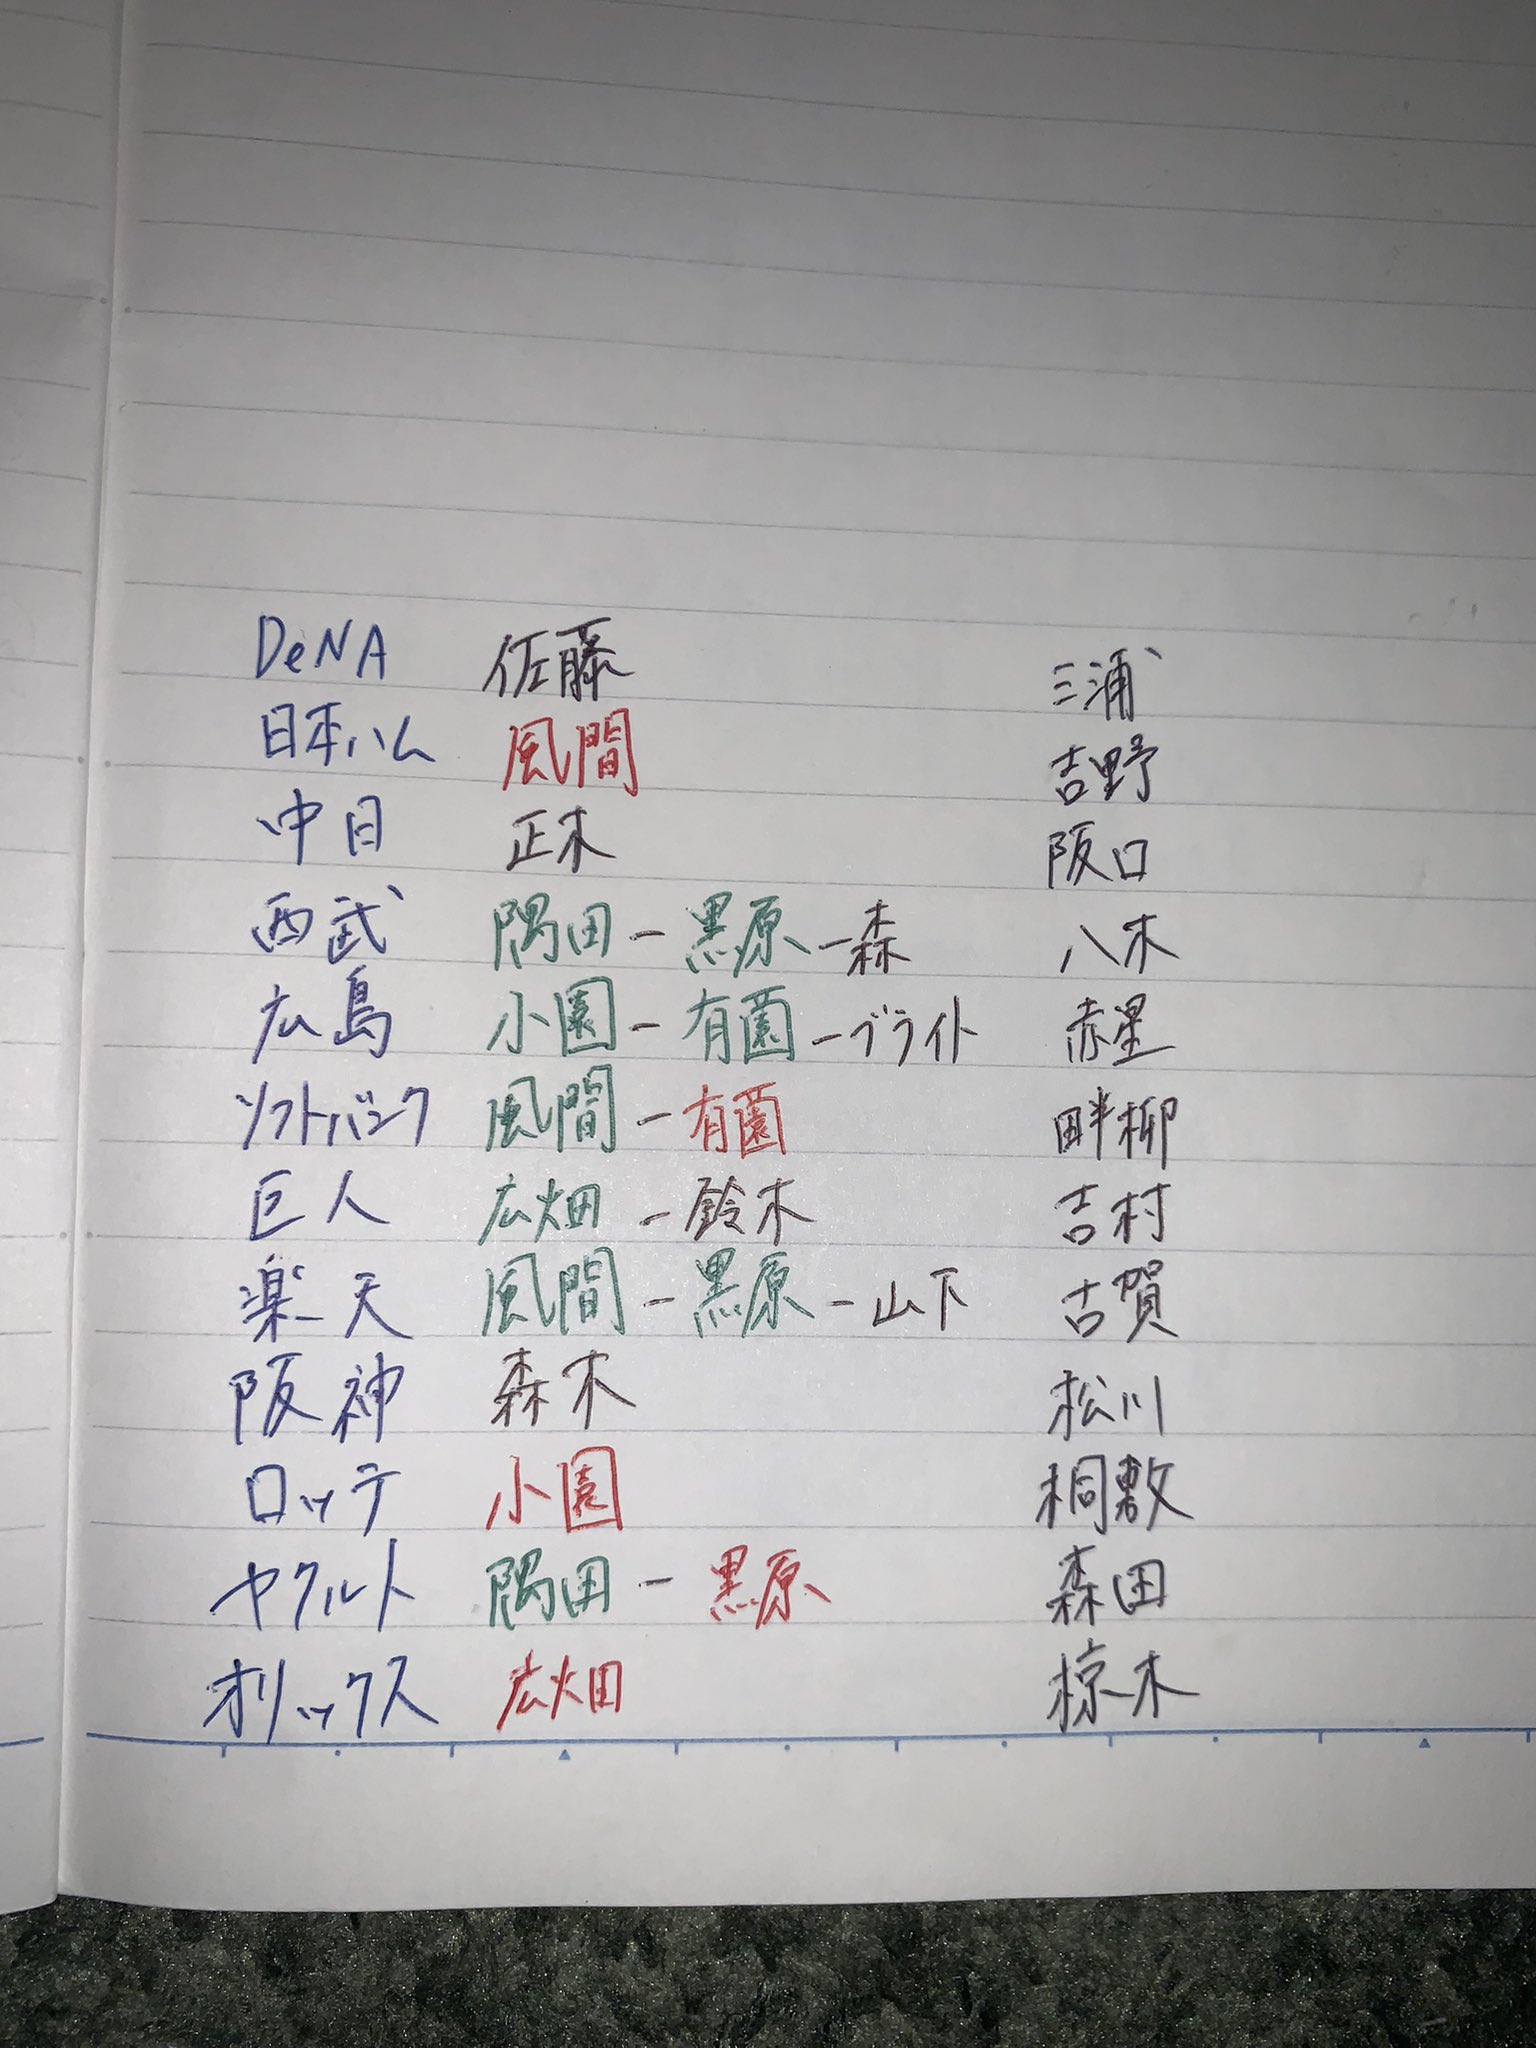 DeNA 佐藤 三浦
日本ハム 風間 吉野
中日 正木 阪口
西武 隅田-黒原-森 八木
広島 小園-有薗-ブライト 赤星
ソフトバンク 風間-有薗 畔柳
巨人 広畑-鈴木 吉村
楽天 風間-黒原-山下 古賀
阪神 森木 松川
ロッテ 小園 桐敷
ヤクルト 隅田-黒原 森田
オリックス 広畑 椋木